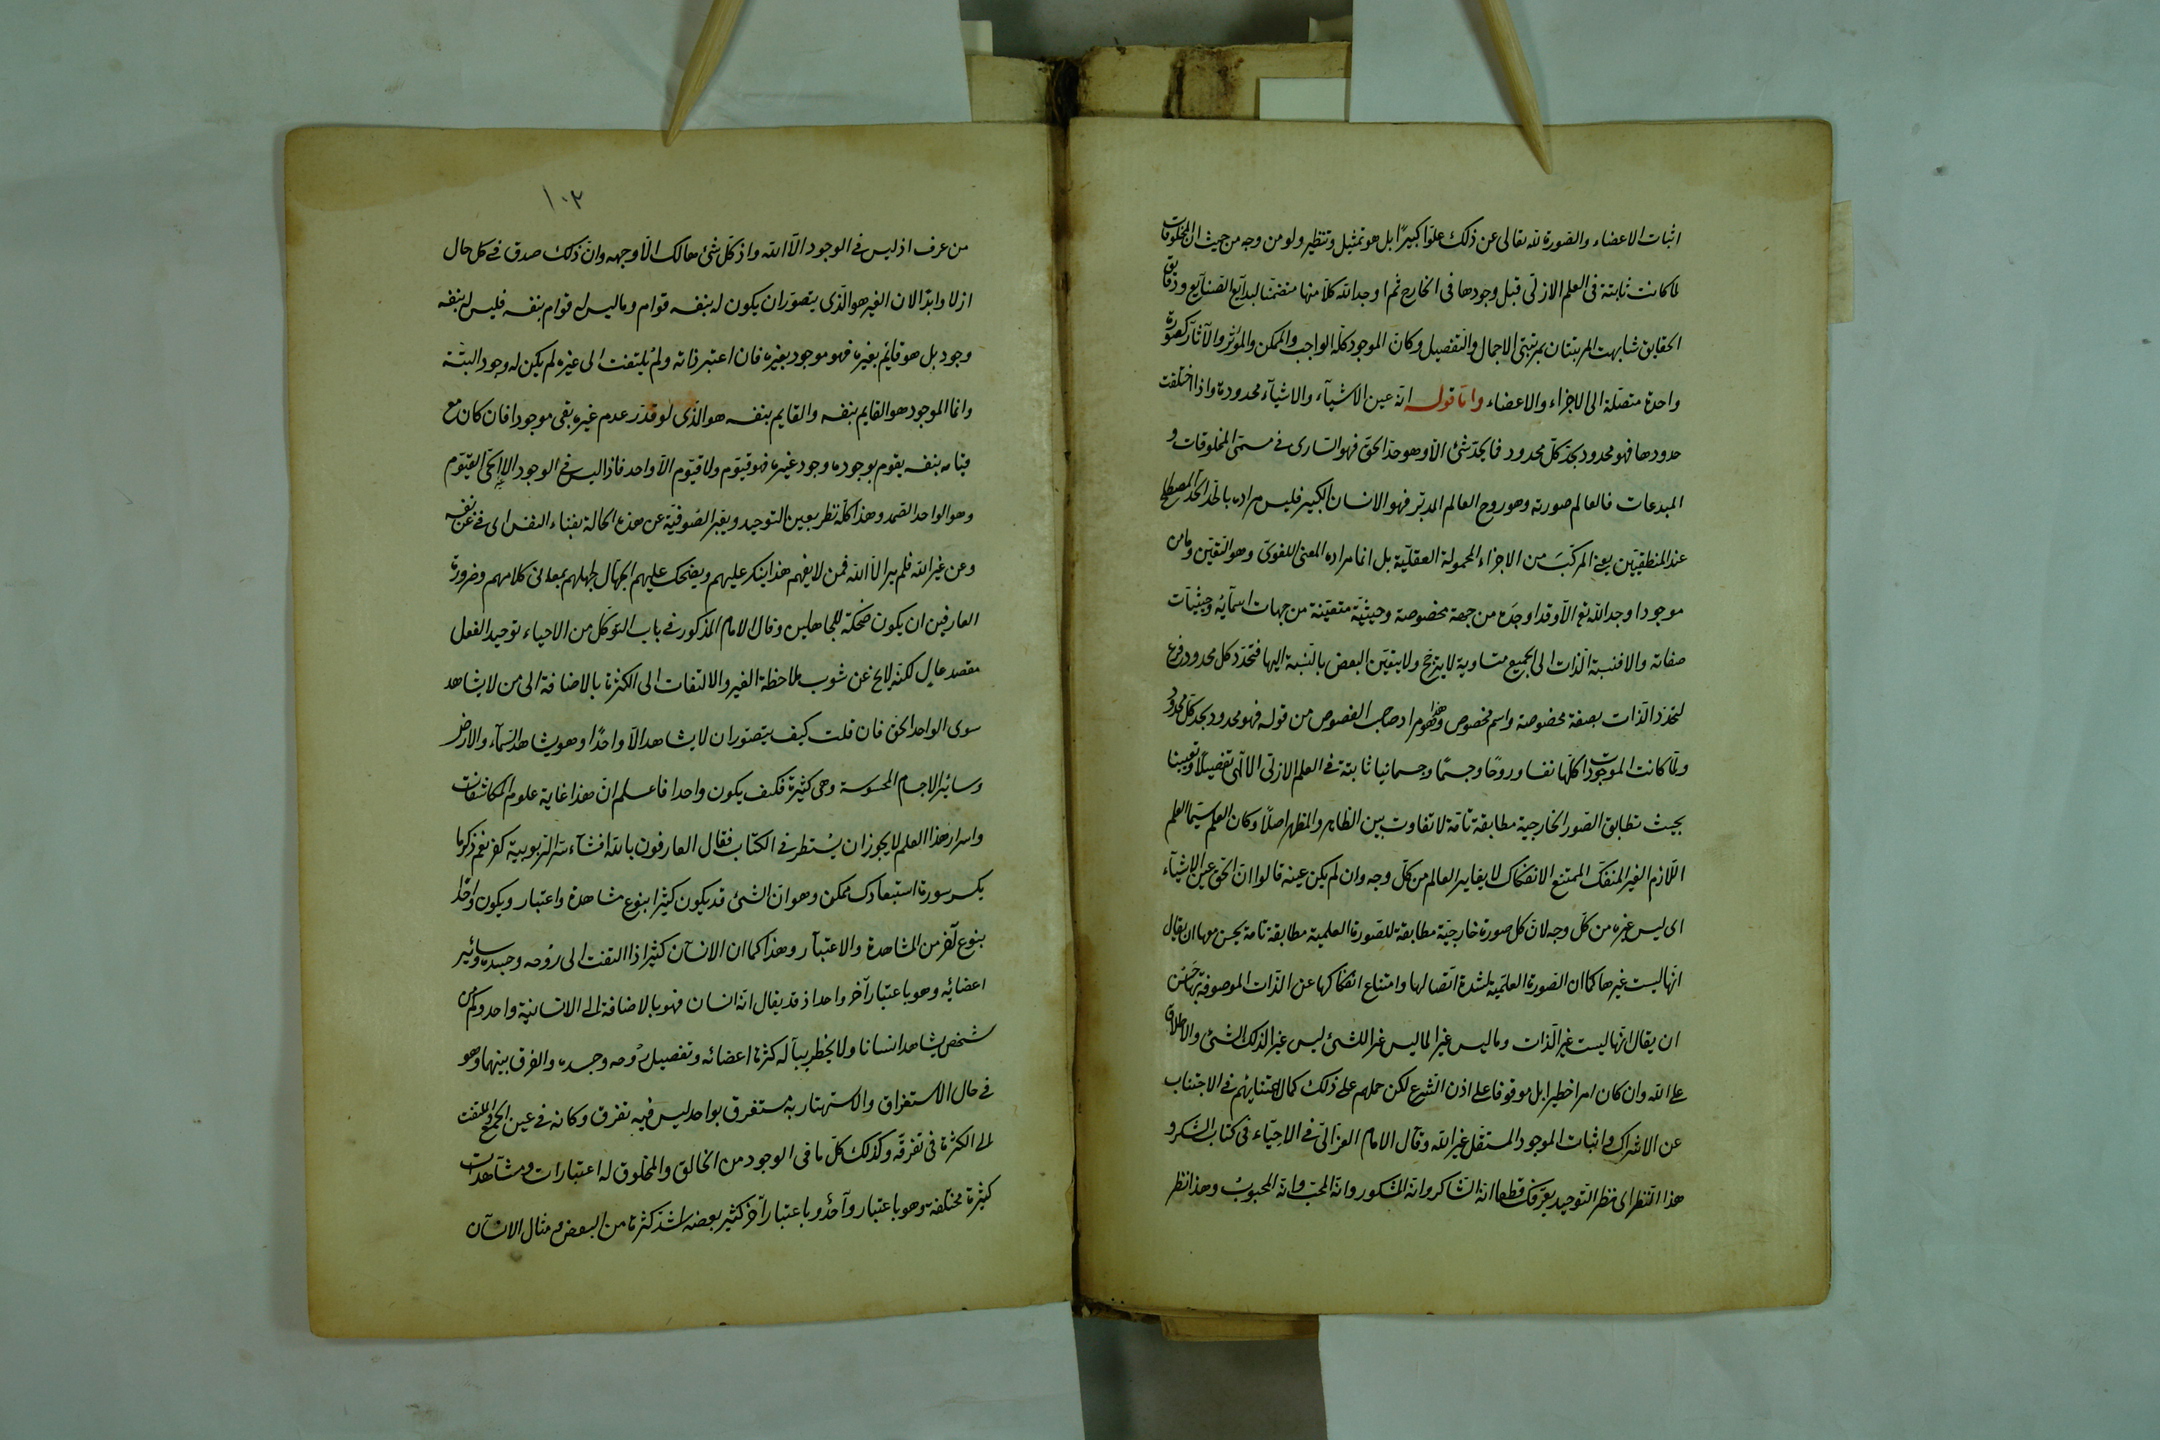 اثبات الاعضاء والصورة لله تعالى عن ذلك علوا كبيرا بل هو تمثيل وتنظير ولو من وجه من حيث ان المخلوقات
لما كانت ثابتة فى العلم الازلى قبل وجودها فى الخارج ثم اوجد الله كلا منها متضمنا لبدايع الصنايع ودقايق
الحقايق شابهت المرتبتان بمرتبتى الاجمال والتفصيل وكان الموجود كله الواجب والممكن والمؤثر والآثار كصورة
واحدة متصلة الى الاجزاء والاعضاء واما قوله انه عين الاشياء والاشياء محدودة واذا اختلفت
حدودها فهو محدود بحد كل محدود فما يحد شئ الا وهو حد الحق فهو السارى فى مسمى المخلوقات و
المبدعات فالعالم صورته وهو روح العالم المدبر فهو الانسان الكبير فليس مراده بالحد الحد المصطلح
عند المنطقيين يعنى المركب من الاجزاء المحمولة العقلية بل انما مراده المعنى اللغوى وهو التعين وما من
موجود اوجد الله تع الا وقد اوجده من جهة مخصوصة وحيثية متعينة من جهات اسمائه وحيثيات
صفاته والا فنسبة الذات الى الجميع متساوية لا يترجح ولا يتعين البعض بالنسبة اليها فتحدد كل محدود فرع
لتحدد الذات بصفة مخصوصة واسم مخصوص وهذا هو مراد صاحب الفصوص من قوله فهو محدود بحد كل محدود
ولما كانت الموجودات كلها نفسا وروحا وجسما وجسمانيا ثابتة فى العلم الازلى الالهى تفصيلا وتعيينا
بحيث تطابق الصور الخارجية مطابقة تامة لا تفاوت بين الظاهر والمظهر اصلا وكان العلم سيما العلم
اللازم الغير المنفك الممتنع الانفكاك لا يغاير العالم من كل وجه وان لم يكن عينه قالوا ان الحق عين الاشياء
اى ليس غيره من كل وجه لان كل صورة خارجية مطابقة للصورة العلمية مطابقة تامة يحسن معها ان يقال
انها ليست غيرها كما ان الصورة العلمية لشدة اتصالها وامتناع انفكاكها عن الذات الموصوفة بها حسن
ان يقال انها ليست غير الذات وما ليس غيرا لما ليس غيرا للشئ ليس غيرا لذلك الشئ والاطلاق
على الله وان كان امرا خطيرا بل موقوفا على اذن الشرع لكن حملهم على ذلك كمال اعتنايهم فى الاجتناب
عن الاشراك واثبات الموجود المستقل غير الله وقال الامام الغزالى فى الاحياء فى كتاب الشكر و
هذا النظر اى نظر التوحيد يعرفك قطعا انه الشاكر وانه المشكور وانه المحب وانه المحبوب وهذا نظر
١٠٢
من عرف اذ ليس فى الوجود الا الله واذ كل شئ هالك الا وجهه وان ذلك صدق فى كل حال
ازلا وابدا لان الغير هو الذى يتصور ان يكون له بنفسه قوام وما ليس له قوام بنفسه فليس له بنفسه
وجود بل هو قايم بغيره فهو موجود بغيره فان اعتبر ذاته ولم يلتفت الى غيره لم يكن له وجود البتة
وانما الموجود هو القايم بنفسه والقايم بنفسه هو الذى لو قدر عدم غيره بقى موجودا فان كان مع
قيامه بنفسه يقوم بوجوده وجود غيره فهو قيوم ولا قيوم الا واحد فاذا ليس فى الوجود الا الحى القيوم
وهو الواحد الصمد وهذا كله نظر بعين التوحيد ويعبر الصوفية عن هذه الحالة بفناء النفس اى فنى عن نفسه
وعن غير الله فلم ير الا الله فمن لا يفهم هذا ينكر عليهم ويضحك عليهم الجهال لجهلهم بمعانى كلامهم وضرورة
العارفين ان يكون ضحكة للجاهلين وقال الامام المذكور فى باب التوكل من الاحياء توحيد الفعل
مقصد عال لكنه لا يخ عن شوب ملاحظة الغير والالتفات الى الكثرة بالاضافة الى من لا يشاهد
سوى الواحد الحق فان قلت كيف يتصور ان لا يشاهد الا واحدا وهو يشاهد السماء والارض
وسائر الاجسام المحسوسة وهى كثيرة فكيف يكون واحدا فاعلم ان هذا غاية علوم المكاشفات
واسرار هذا العلم لا يجوز ان يستطر فى الكتاب فقال العارفون بالله افشاء سر الربوبية كفر نعم ذكر ما
يكسر سورة استبعادك ممكن وهو ان الشئ قد يكون كثيرا بنوع مشاهدة واعتبار ويكون واحدا
بنوع آخر من المشاهدة والاعتبار وهذا كما ان الانسان كثير اذا التفت الى روحه وجسده وسائر
اعضائه وهو باعتبار آخر واحد اذ قد يقال انه انسان فهو بالاضافة الى الانسانية واحد وكم من
شخص يشاهد انسانا ولا يخطر بباله كثرة اعضائه وتفصيل روحه وجسده والفرق بينهما وهو
فى حال الاستغراق والاستهتار به مستغرق بواحد ليس فيه تفرق وكانه فى عين الجمع والملتفت
الى الكثرة فى تفرقة وكذلك كل ما فى الوجود من الخالق والمخلوق له اعتبارات ومشاهدات
كثيرة مختلفة وهو باعتبار واحد وباعتبار آخر كثير بعضه اشد كثرة من البعض ومثال الانسان